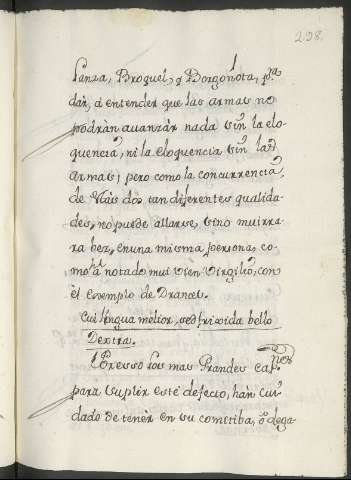 298.
Lanza, Broquel, y Borgoñota, p.ª
dár, á entender que las armas no
podràn auanzár nada sin la elo-
quencia, ni la eloquencia sin las
armas; pero como la concurrencia
de estas dos tan diferentes qualida-
des, no puede allarse, sino mui rra-
ra bez, en una misma persona, co-
mo ha notado mui bien Virgilio, con
el exemplo de Drances.
Cui lingua melior, sed frixida bello
Dextra.
Por esso los mas Grandes cap.nes
para suplir este defecto, han cui-
dado de tenér en su comitiba, ó dega